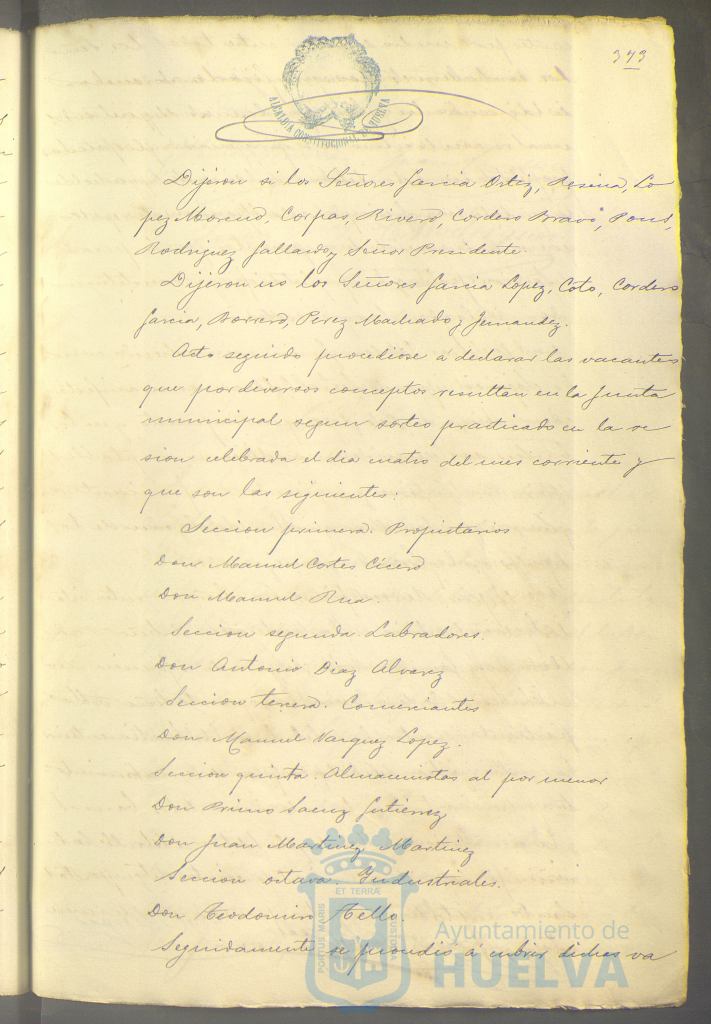 373
ALCALDIA CONSTITUCIONAL DE HUELVA
Dijeron si los Señores Garcia Ortiz, Resina, Lo
pez Moreno, Corpas, Rivero, Cordero Bravo, Pons,
Rodriguez Gallardo y Señor Presidente.
Dijeron no los Señores Garcia Lopez, Coto, Cordero
Garcia, Borrero, Perez Machado y Fernandez.
Acto seguido procediose á declarar las vacantes
que por diversos conceptos resultan en la Junta
municipal segun sorteo practicado en la se
sion celebrada el dia cuatro del mes corriente y
que son las siguientes:
Seccion primera. Propietarios
Don Manuel Cortes Cicero
Don Manuel Rua.
Seccion segunda. Labradores.
Don Antonio Diaz Alvarez
Seccion tercera. Comerciantes
Don Manuel Vazquez Lopez.
Seccion quinta. Almacenistas al por menor
Don Primo Saenz Gutiérrez
Don Juan Martinez Martinez
Seccion octava Industriales.
Don Teodomiro Tello.
Seguidamente se procedió á cubrir dichas va
PORTUS MARIS ET TERRÆ CUSTODIA
Ayuntamiento de
HUELVA